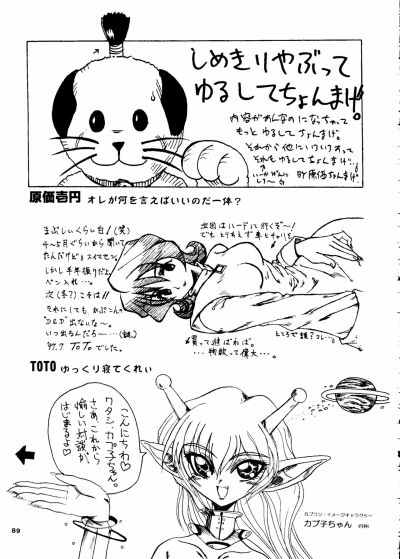 しめきりやぶって
ゆるしてちょんまげ。
内容がこんなのになっちゃって
もっとゆるしてちょんまげ。
それから他にいろいろあって
それもゆるしてちょんまげ。
BY 原価ちょんまげ。
原価壱円 オレが何を言えばいいのだ一体?
まぶしいくらい白!(笑)
4〜5月ぐらいから聞いて
たんだけどョスイマセン。
しかし半年振りだよ
ペン入れ…。
次(冬?)こそは!!
それにしてもかぷこんの
"D&D"出ないな〜。
いつ出るんだろ〜…(鎖)
'97.7. ToTo でした。
次回はハードに行くぞ〜!
でもとりあえず車とチャリを
買って遊ばねば。
…物欲って偉大〜。
ところで鎖?コレ…。
TOTO ゆっくり寝てくれい
こんにちわ♡
ワタシ、カプ子ちゃん。
さあ、これから
愉しい対談が
はじまるよ♡
カプコン・イメージキャラクター
カプ子ちゃん
89